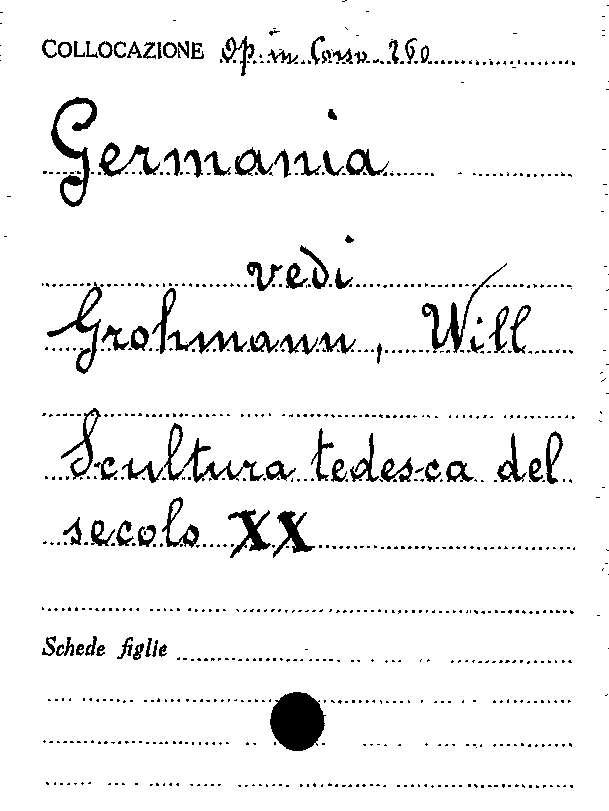 COLLOCAZIONE Op. in Corso 260
Germania
vedi
Grohmann, Will
Scultura tedesca del
secolo XX
Schede figlie